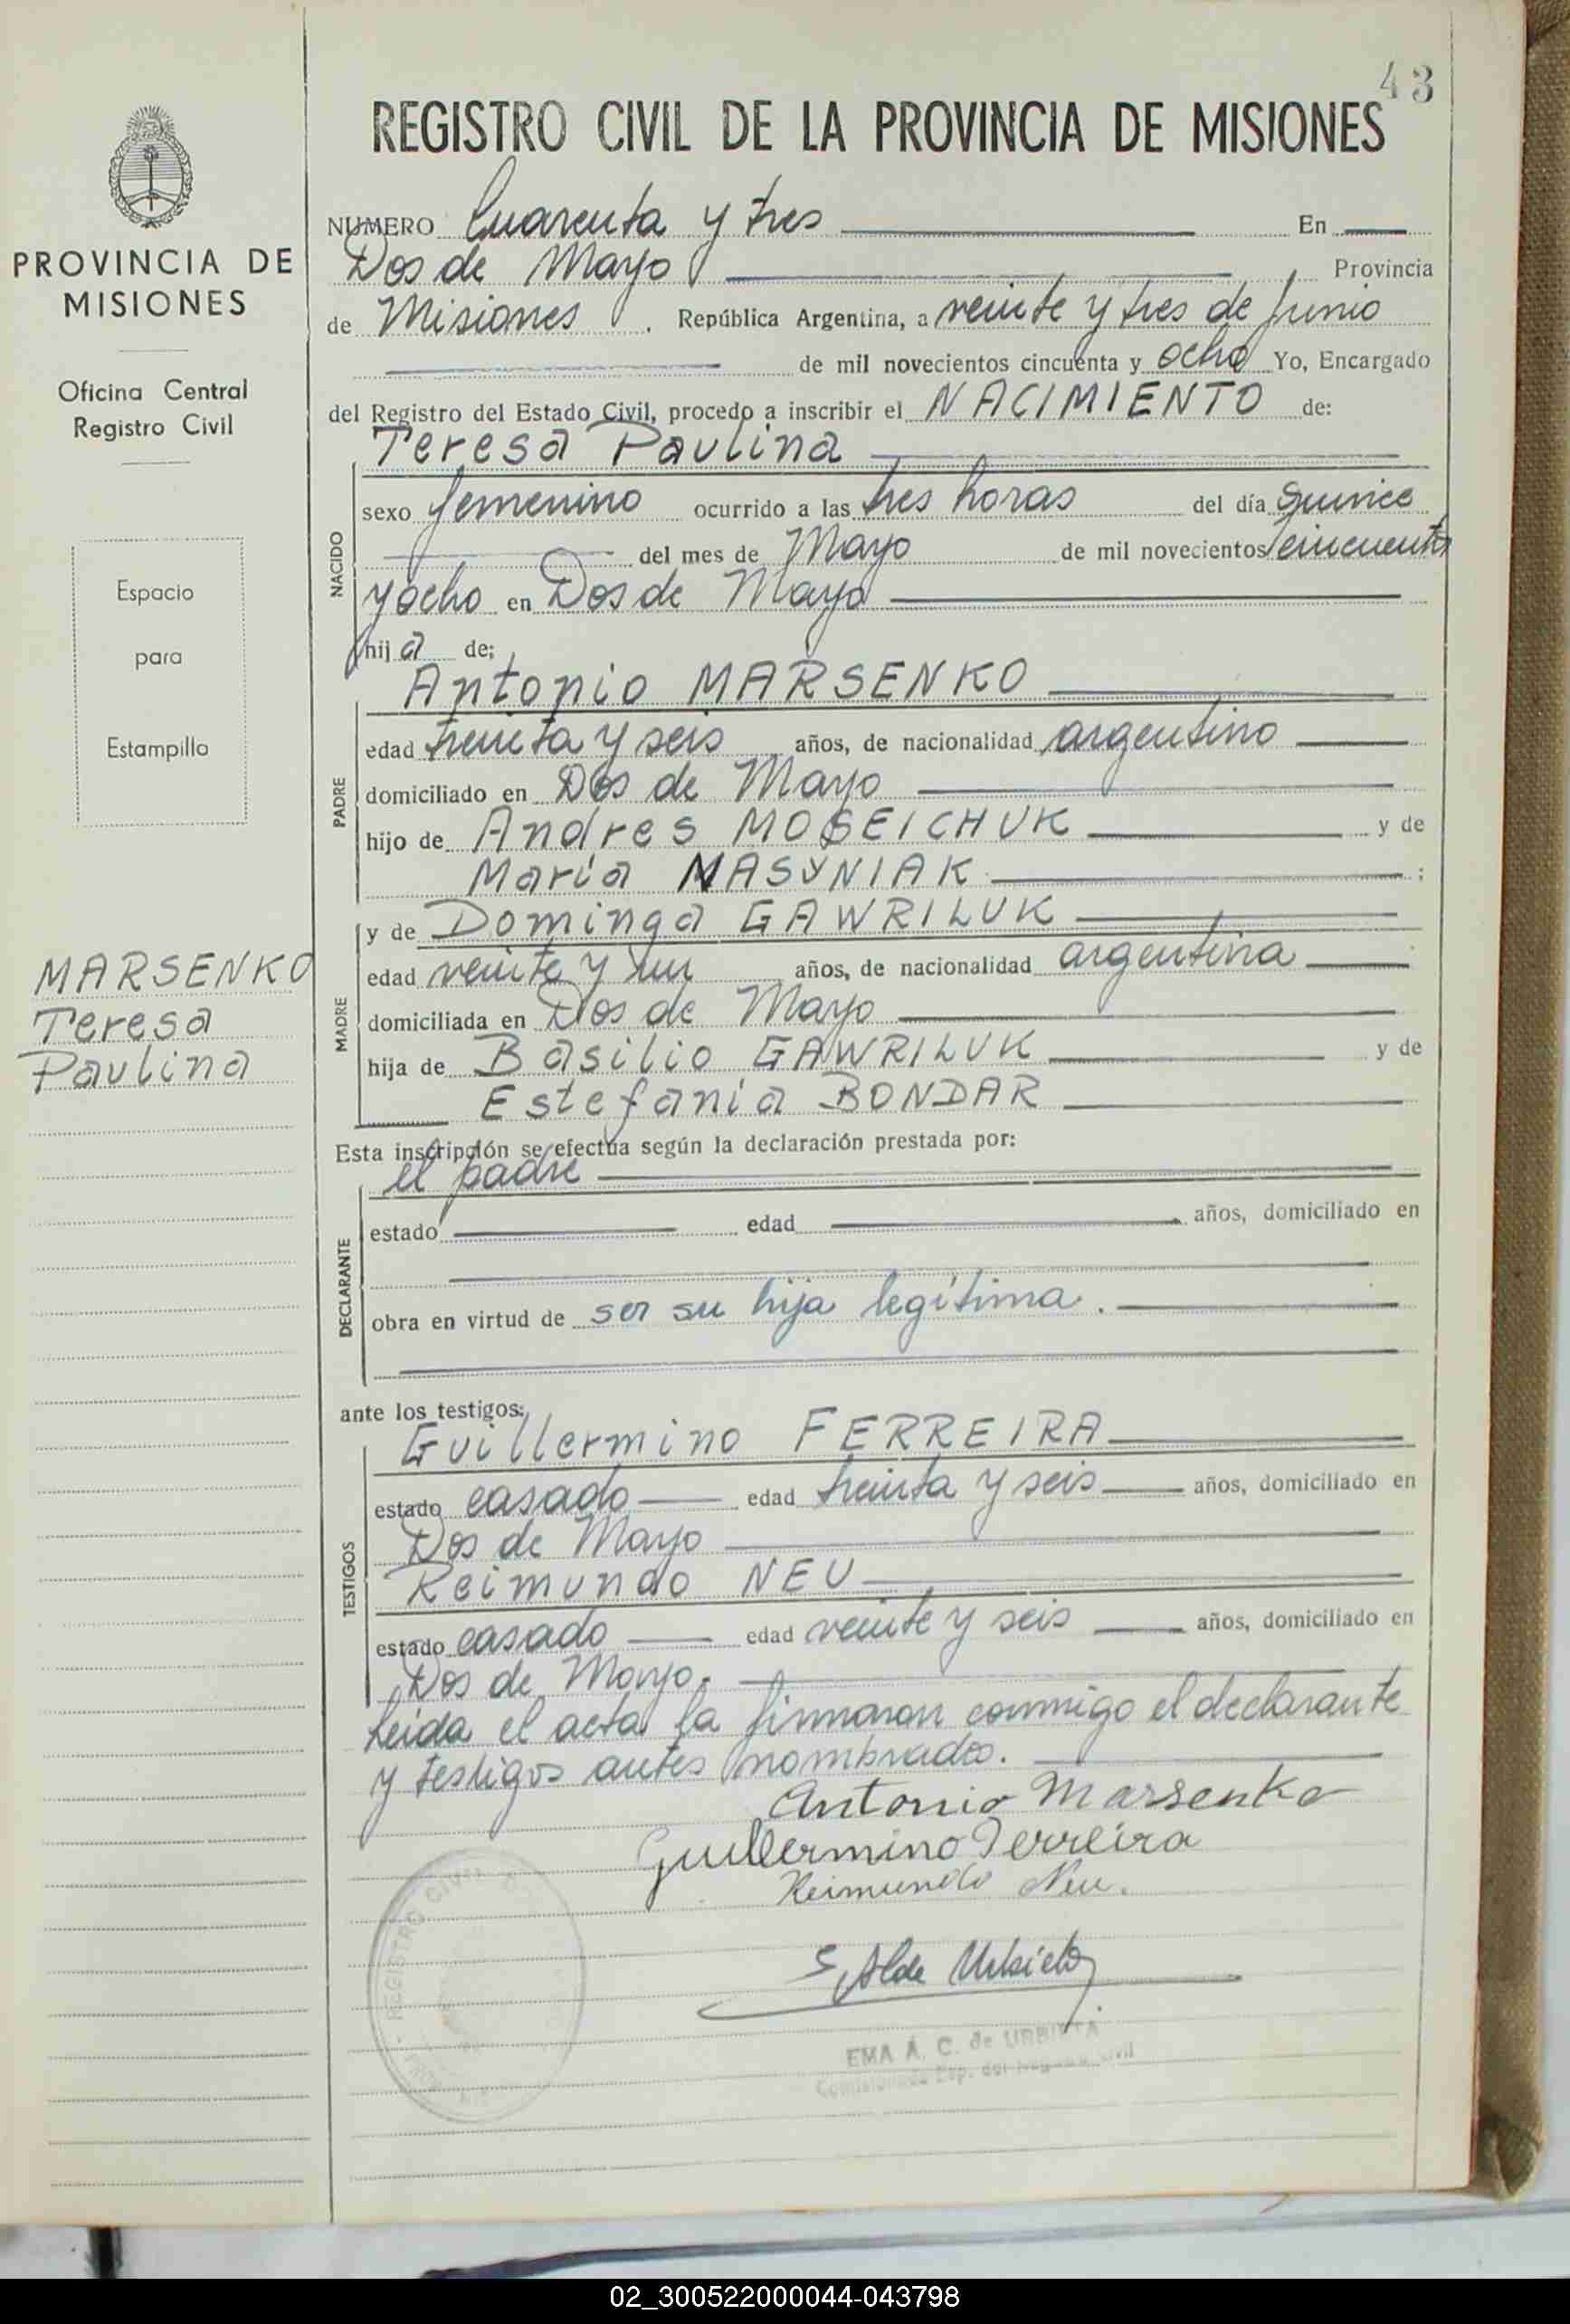 43
REGISTRO CIVIL DE LA PROVINCIA DE MISIONES
PROVINCIA DE
MISIONES
Oficina Central
Registro Civil
Espacio
para
Estampilla
MARSENKO
Teresa
Paulina
NUMERO Cuarenta y tres En
Dos de Mayo Provincia
de Misiones . República Argentina, a veinte y tres de Junio
de mil novecientos cincuenta y ocho Yo, Encargado
del Registro del Estado Civil, procedo a inscribir el NACIMIENTO de:
Teresa Paulina
NACIDO
sexo femenino ocurrido a las tres horas del día quince
del mes de Mayo de mil novecientos cincuenta
y ocho en Dos de Mayo
hija de:
Antonio MARSENKO
PADRE
edad treinta y seis años, de nacionalidad argentino
domiciliado en Dos de Mayo
hijo de Andres MOSEICHUK y de
María MASYNIAK ;
y de Dominga GAWRILUK
MADRE
edad veinte y un años, de nacionalidad argentina
domiciliada en Dos de Mayo
hija de Basilio GAWRILUK y de
Estefanía BONDAR
Esta inscripción se efectúa según la declaración prestada por:
el padre
DECLARANTE
estado edad años, domiciliado en
obra en virtud de ser su hija legítima.
ante los testigos:
Guillermino FERREIRA
TESTIGOS
estado casado edad treinta y seis años, domiciliado en
Dos de Mayo
Reimundo NEU
estado casado edad veinte y seis años, domiciliado en
Dos de Mayo.
Leída el acta la firmaron conmigo el declarante
y testigos antes nombrados.
Antonio Marsenko
Guillermino Ferreira
Reimundo Neu.
REGISTRO CIVIL
EMA A. C. de URBIETA
02_300522000044-043798